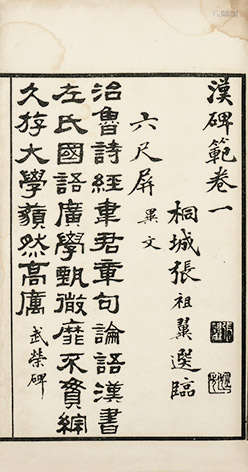 漢碑範卷一
桐城張祖翼選臨
六尺屏 異文
治魯詩經韋君章句論語漢書
左氏國語廣學甄微靡不貫綜
久斿大學藐然高厲
武榮碑